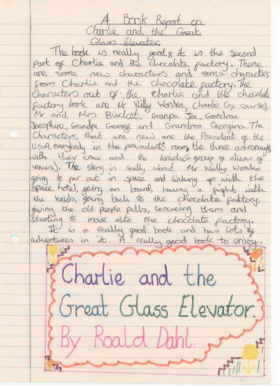 A Book Report on
Charlie and the Great
Glass Elevator.
The book is really good, it is the second
part of Charlie and the chocolate factory. There
are some new characters and some characters
from Charlie and the chocolate factory. The
Characters out of the Charlie and the chocolate
factory book are Mr Willy Wonka, Charlie
Mr and Mrs Bucket, Grandpa Joe, Grandma
Josephine, Grandpa George and Grandma Georgina. The
Characters that are new are the President of the
U.S.A, everybody in the president's room, the three astronauts
with their crew and the
The story is really about Mr Willy Wonka
going to in space and linking up with the
space hotel, going on board, having a with
the knids, going back to the chocolate factory,
giving the old people pills, them and
starting to the chocolate factory.
It is a really good book and has lots of
adventures in it. A really good book to enjoy.
Charlie and the
Great Glass Elevator.
By Roald Dahl